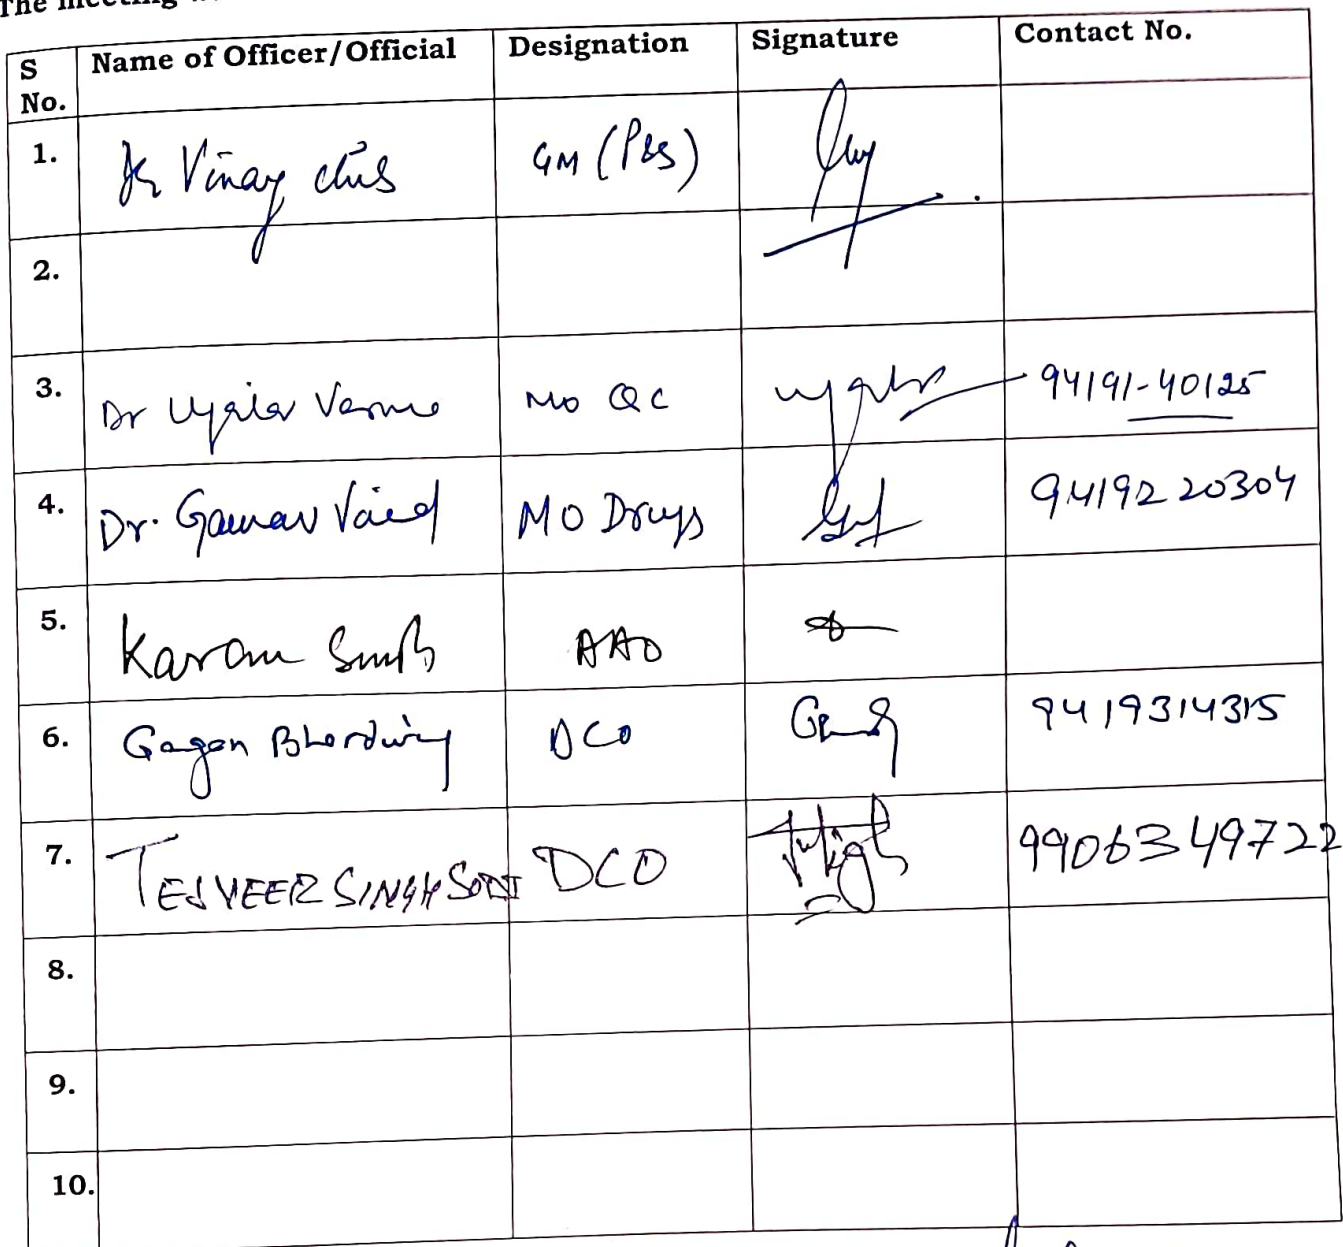 The meeting
S No. Name of Officer/Official Designation Signature Contact No.
1. Dr Vinay GM (P&S)
2.
3. Dr Verma MO QC 94191-40125
4. Dr. Gaurav Vaid MO Drugs 9419220304
5. Karan Singh AAO
6. Gagan Bhardwaj DCO 9419314315
7. TEJVEER SINGH SODI DCO 9906349722
8.
9.
10.